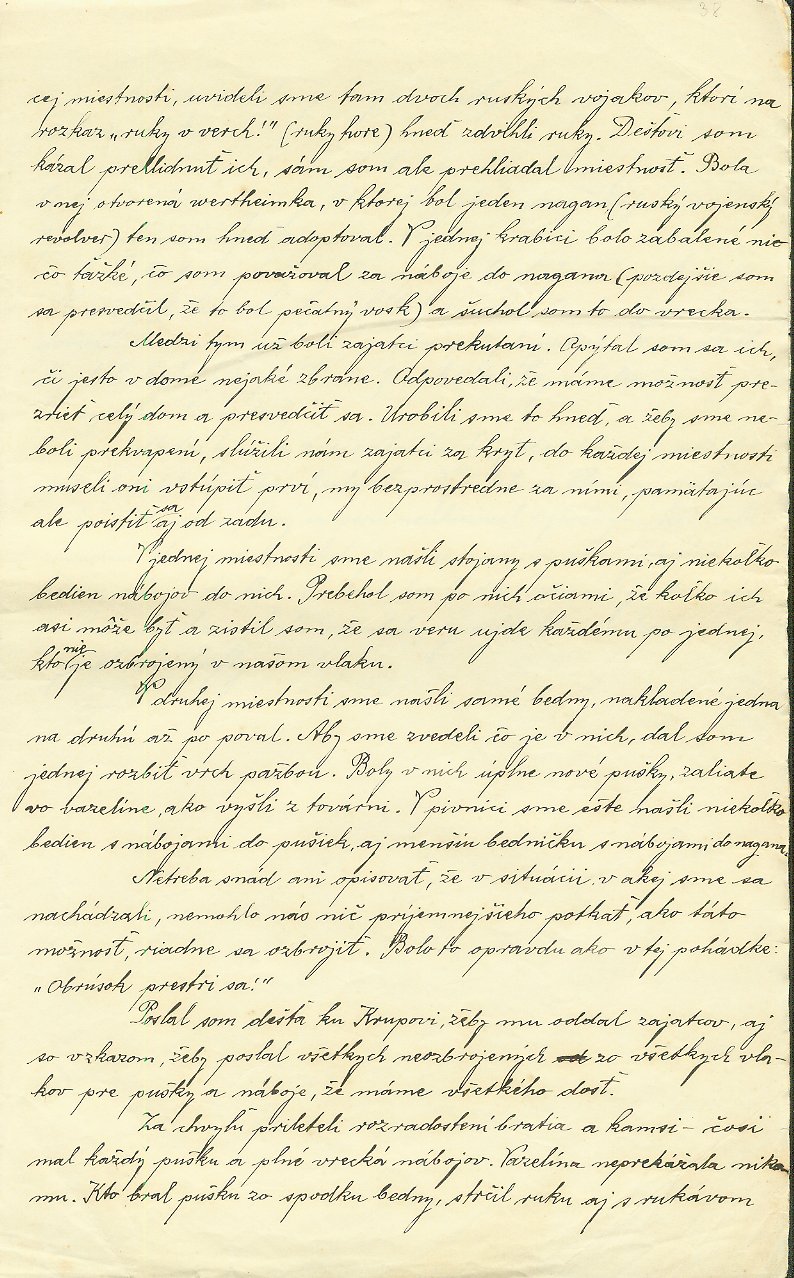 38
cej miestnosti, uvideli sme tam dvoch ruských vojakov, ktorí na
rozkaz „ruky v verch!" (ruky hore) hneď zdvihli ruky. Dešťovi som
kázal prehlidnuť ich, sám som ale prehliadal miestnosť. Bola
v nej otvorená wertheimka, v ktorej bol jeden nagan (ruský vojenský
revolver) ten som hneď adoptoval. V jednej krabici bolo zabalené nie-
čo ťažké, čo som považoval za náboje do nagana (pozdejšie som
sa presvedčil, že to bol pečatný vosk) a šuchol som to do vrecka.
Medzi tým už bolí zajatci prekutaní. Opýtal som sa ich,
či jesto v dome nejaké zbrane. Odpovedali, že máme možnosť pre-
zrieť celý dom a presvedčiť sa. Urobili sme to hneď, a žeby sme ne-
boli prekvapení, slúžili nám zajatci za kryt, do každej miestnosti
museli oni vstúpiť prví, my bezprostredne za nimi, pamätajúc
ale poistiť sa aj od zadu.
V jednej miestnosti sme našli stojany s puškami, aj niekoľko
bedien nábojov do nich. Prebehol som po nich očiami, že koľko ich
asi môže byť a zistil som, že sa veru ujde každému po jednej,
kto nie je ozbrojený v našom vlaku.
V druhej miestnosti sme našli samé bedny, nakladené jedna
na druhú až po poval. Aby sme zvedeli čo je v nich, dal som
jednej rozbiť vrch pažbou. Boly v nich úplne nové pušky, zaliate
vo vazelíne, ako vyšli z továrni. V pivnici sme ešte našli niekoľko
bedien s nábojami do pušiek, aj menšiu bedničku s nábojami do nagana.
Netreba snáď ani opisovať, že v situácii, v akej sme sa
nachádzali, nemohlo nás nič príjemnejšieho potkať, ako táto
možnosť, riadne sa ozbrojiť. Bolo to opravdu ako v tej pohádke:
„Obrúsok prestri sa!"
Poslal som dešťa ku Krupovi, žeby mu oddal zajatcov, aj
so vzkazom, žeby poslal všetkych neozbrojených zo všetkych vla-
kov pre pušky a náboje, že máme všetkého dosť.
Za chvyľu prileteli rozradostení bratia a kamsi-čosi
mal každý pušku a plné vrecká nábojov. Vazelína neprekážala niko-
mu. Kto bral pušku zo spodku bedny, strčil ruku aj s rukávom